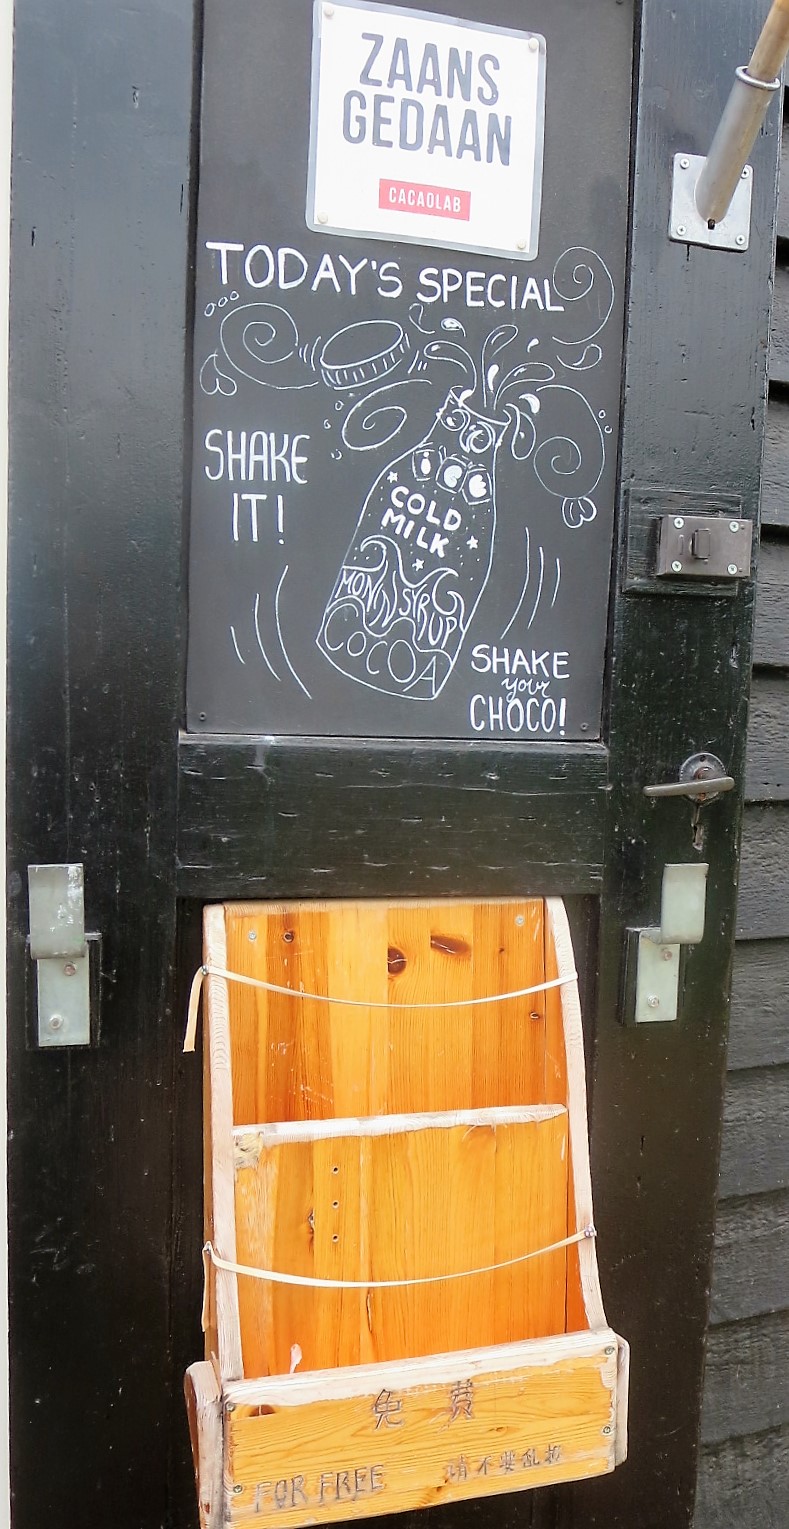 ZAANS
GEDAAN
CACAOLAB
TODAY'S SPECIAL
SHAKE
IT!
ice
COLD
MILK
MONIN SYRUP
COCOA
SHAKE
your
CHOCO!
免费
FOR FREE 请不要乱扔